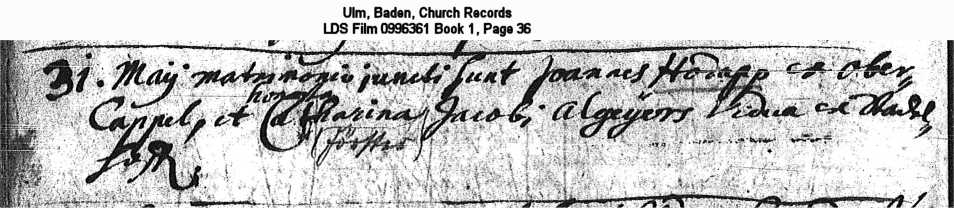 Ulm, Baden, Church Records
LDS Film 0996361 Book 1, Page 36
31. Maij matrimonio juncti sunt Joannes Hodapp ex Ober,,
honesta
Cappel, et Catharina Jacobi Algeyers Vidua ex
(Förster)